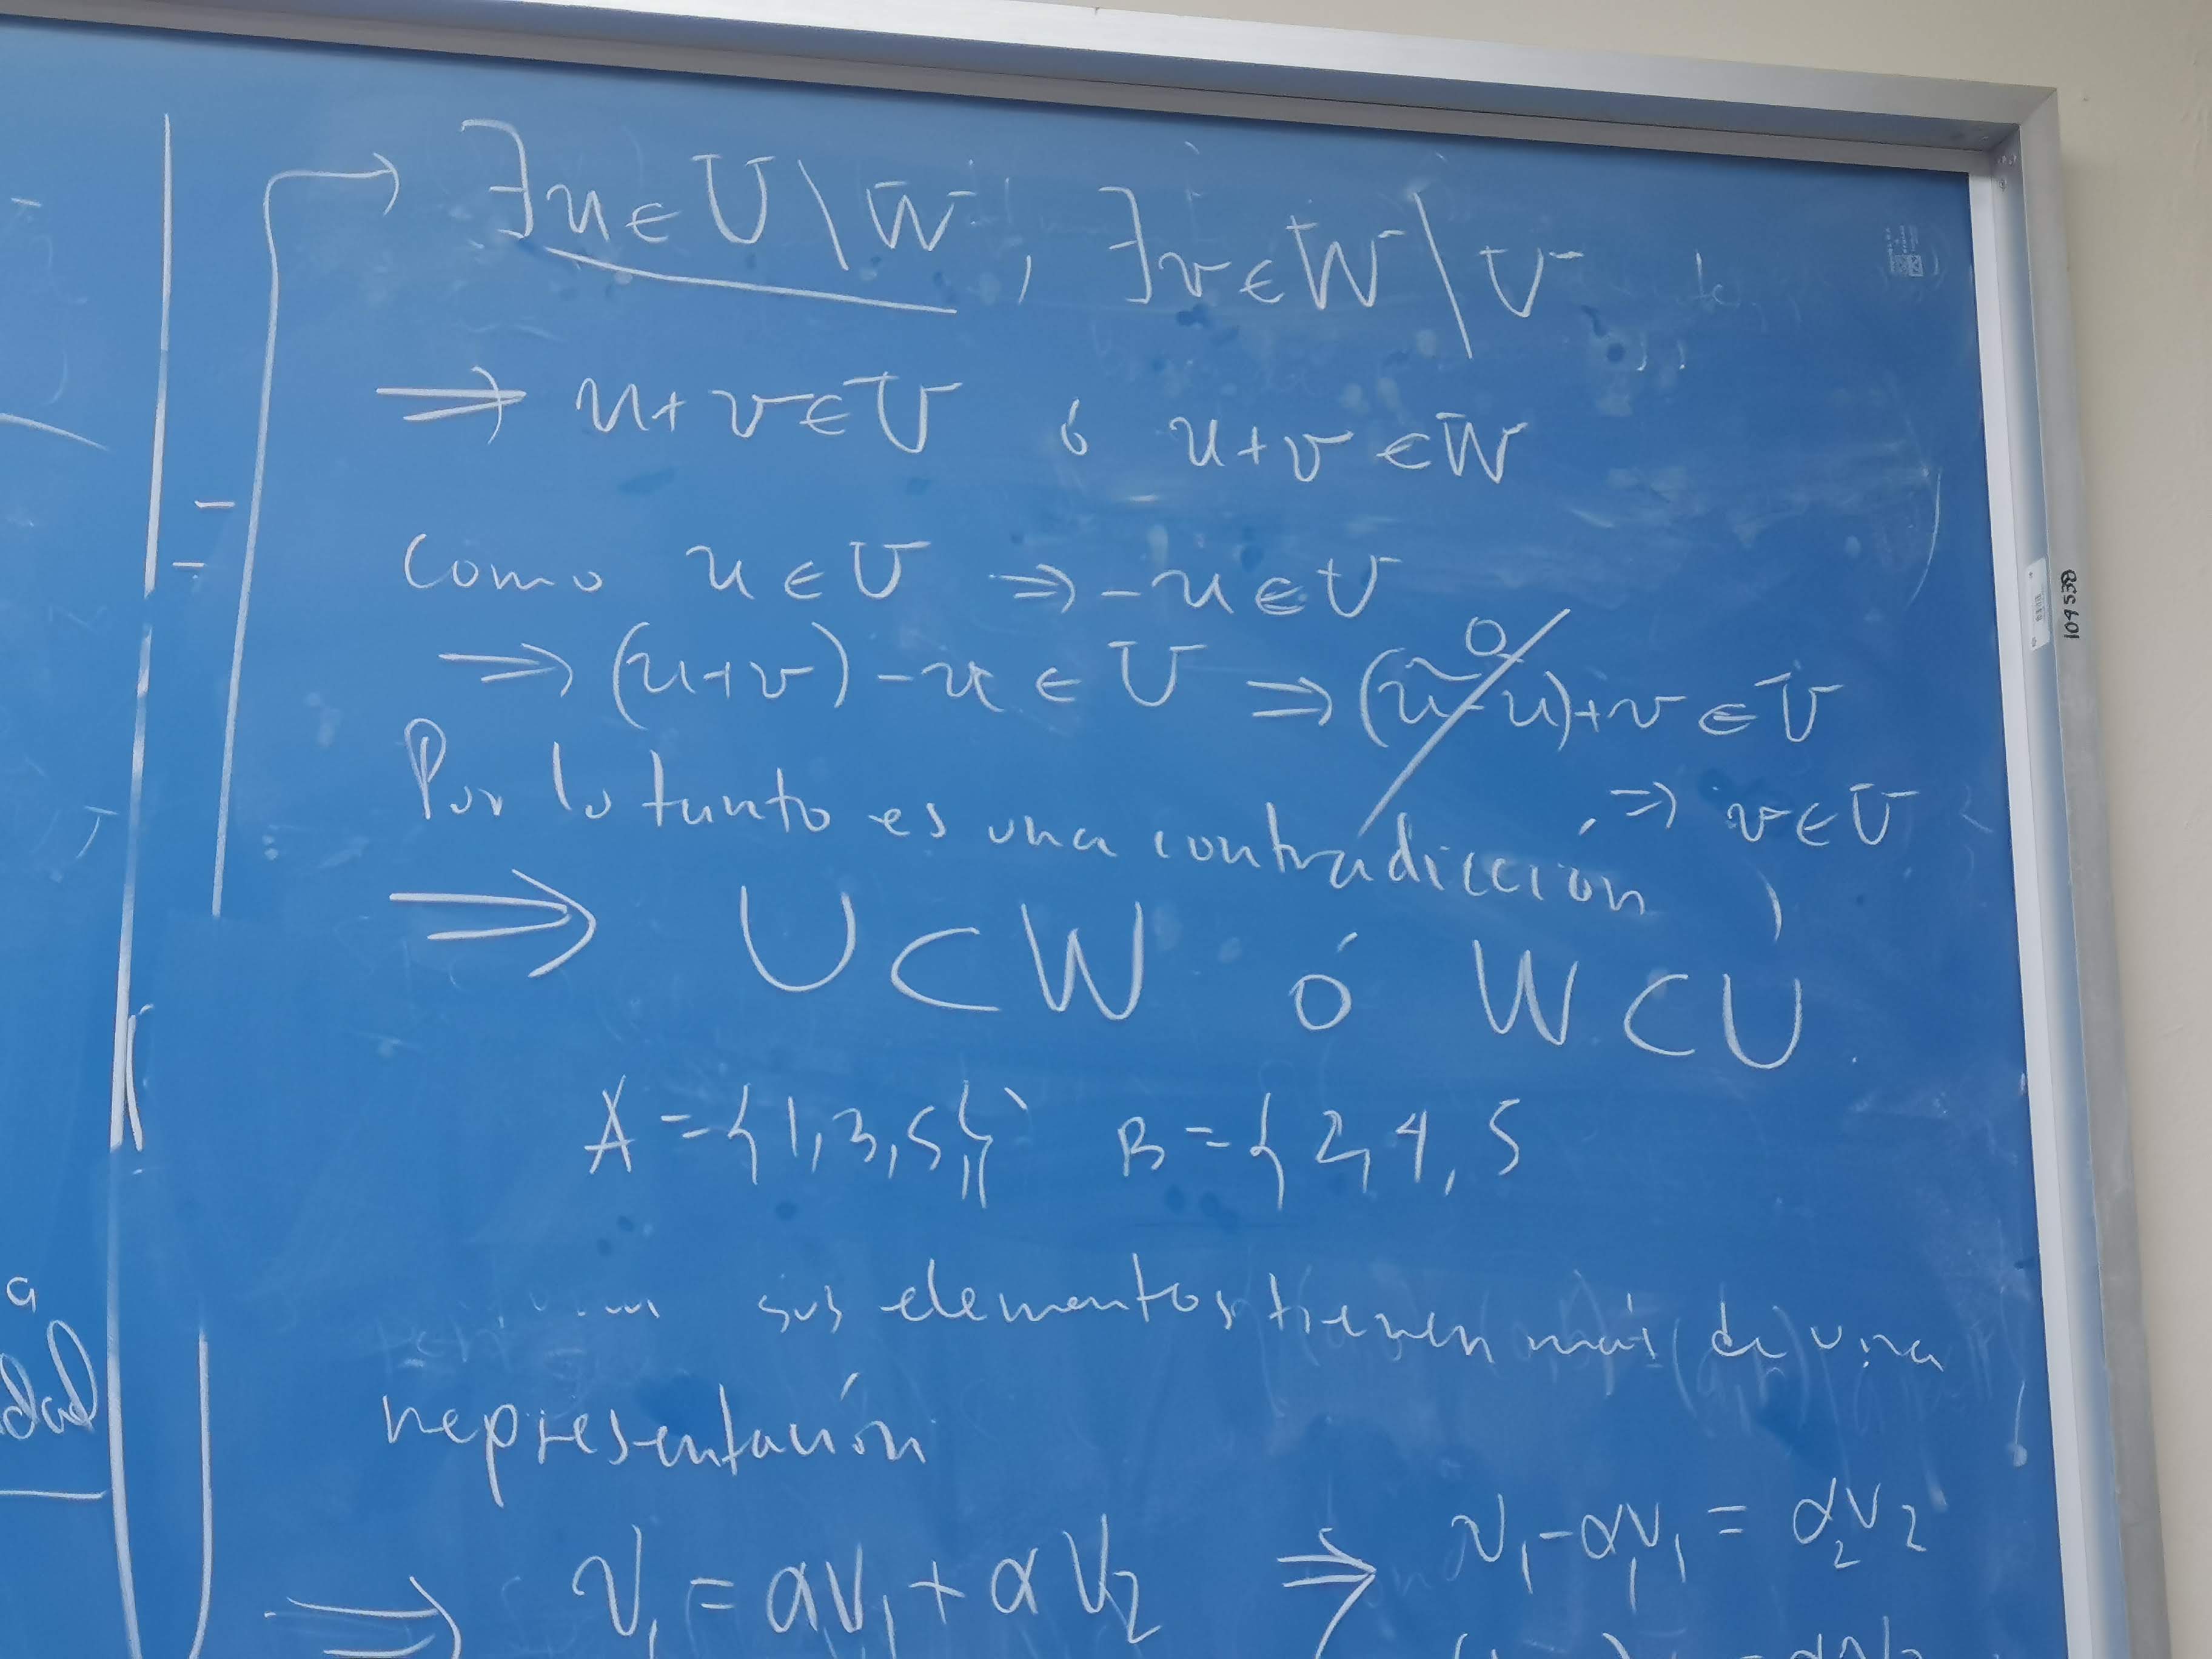 ∃u∈U\W, ∃v∈W\U
⇒ u+v∈U ó u+v∈W
Como u∈U ⇒ -u∈U
⇒ (u+v)-u∈U ⇒ (u-u)+v∈U
0
Por lo tanto es una contradicción, ⇒ v∈U
⇒ U⊂W ó W⊂U
A={1,3,5} B={2,4,5
sus elementos tienen más de una
representación
⇒ v₁=αv₁+αv₂ ⇒ v₁-α₁v₁=α₂v₂
a
dad
BES401